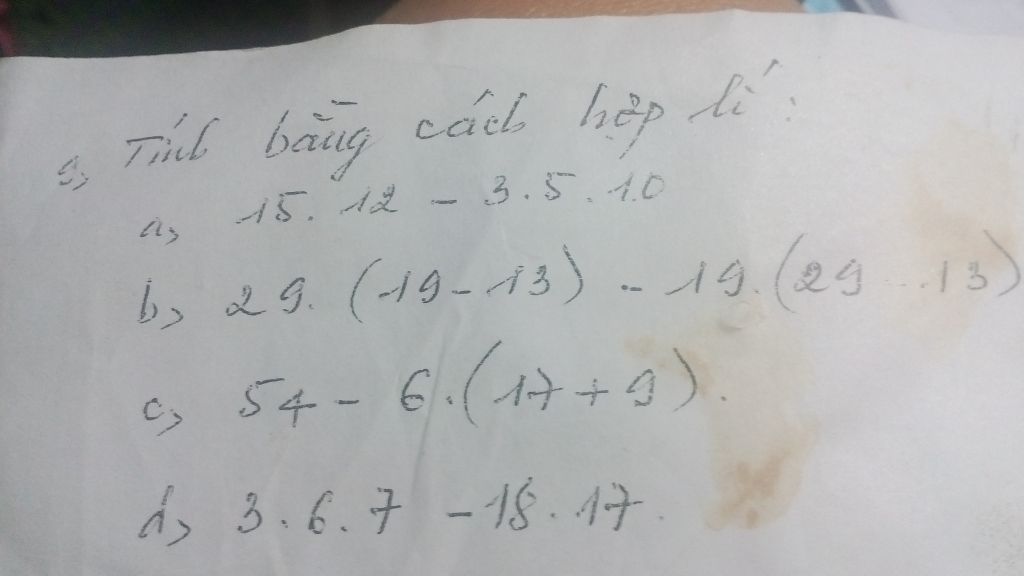 9, Tính bằng cách hợp lí:
a, 15. 12 - 3.5.10
b, 29. (19-13) - 19.(29 - 13)
c, 54 - 6.(17+9).
d, 3.6.7 - 18.17.